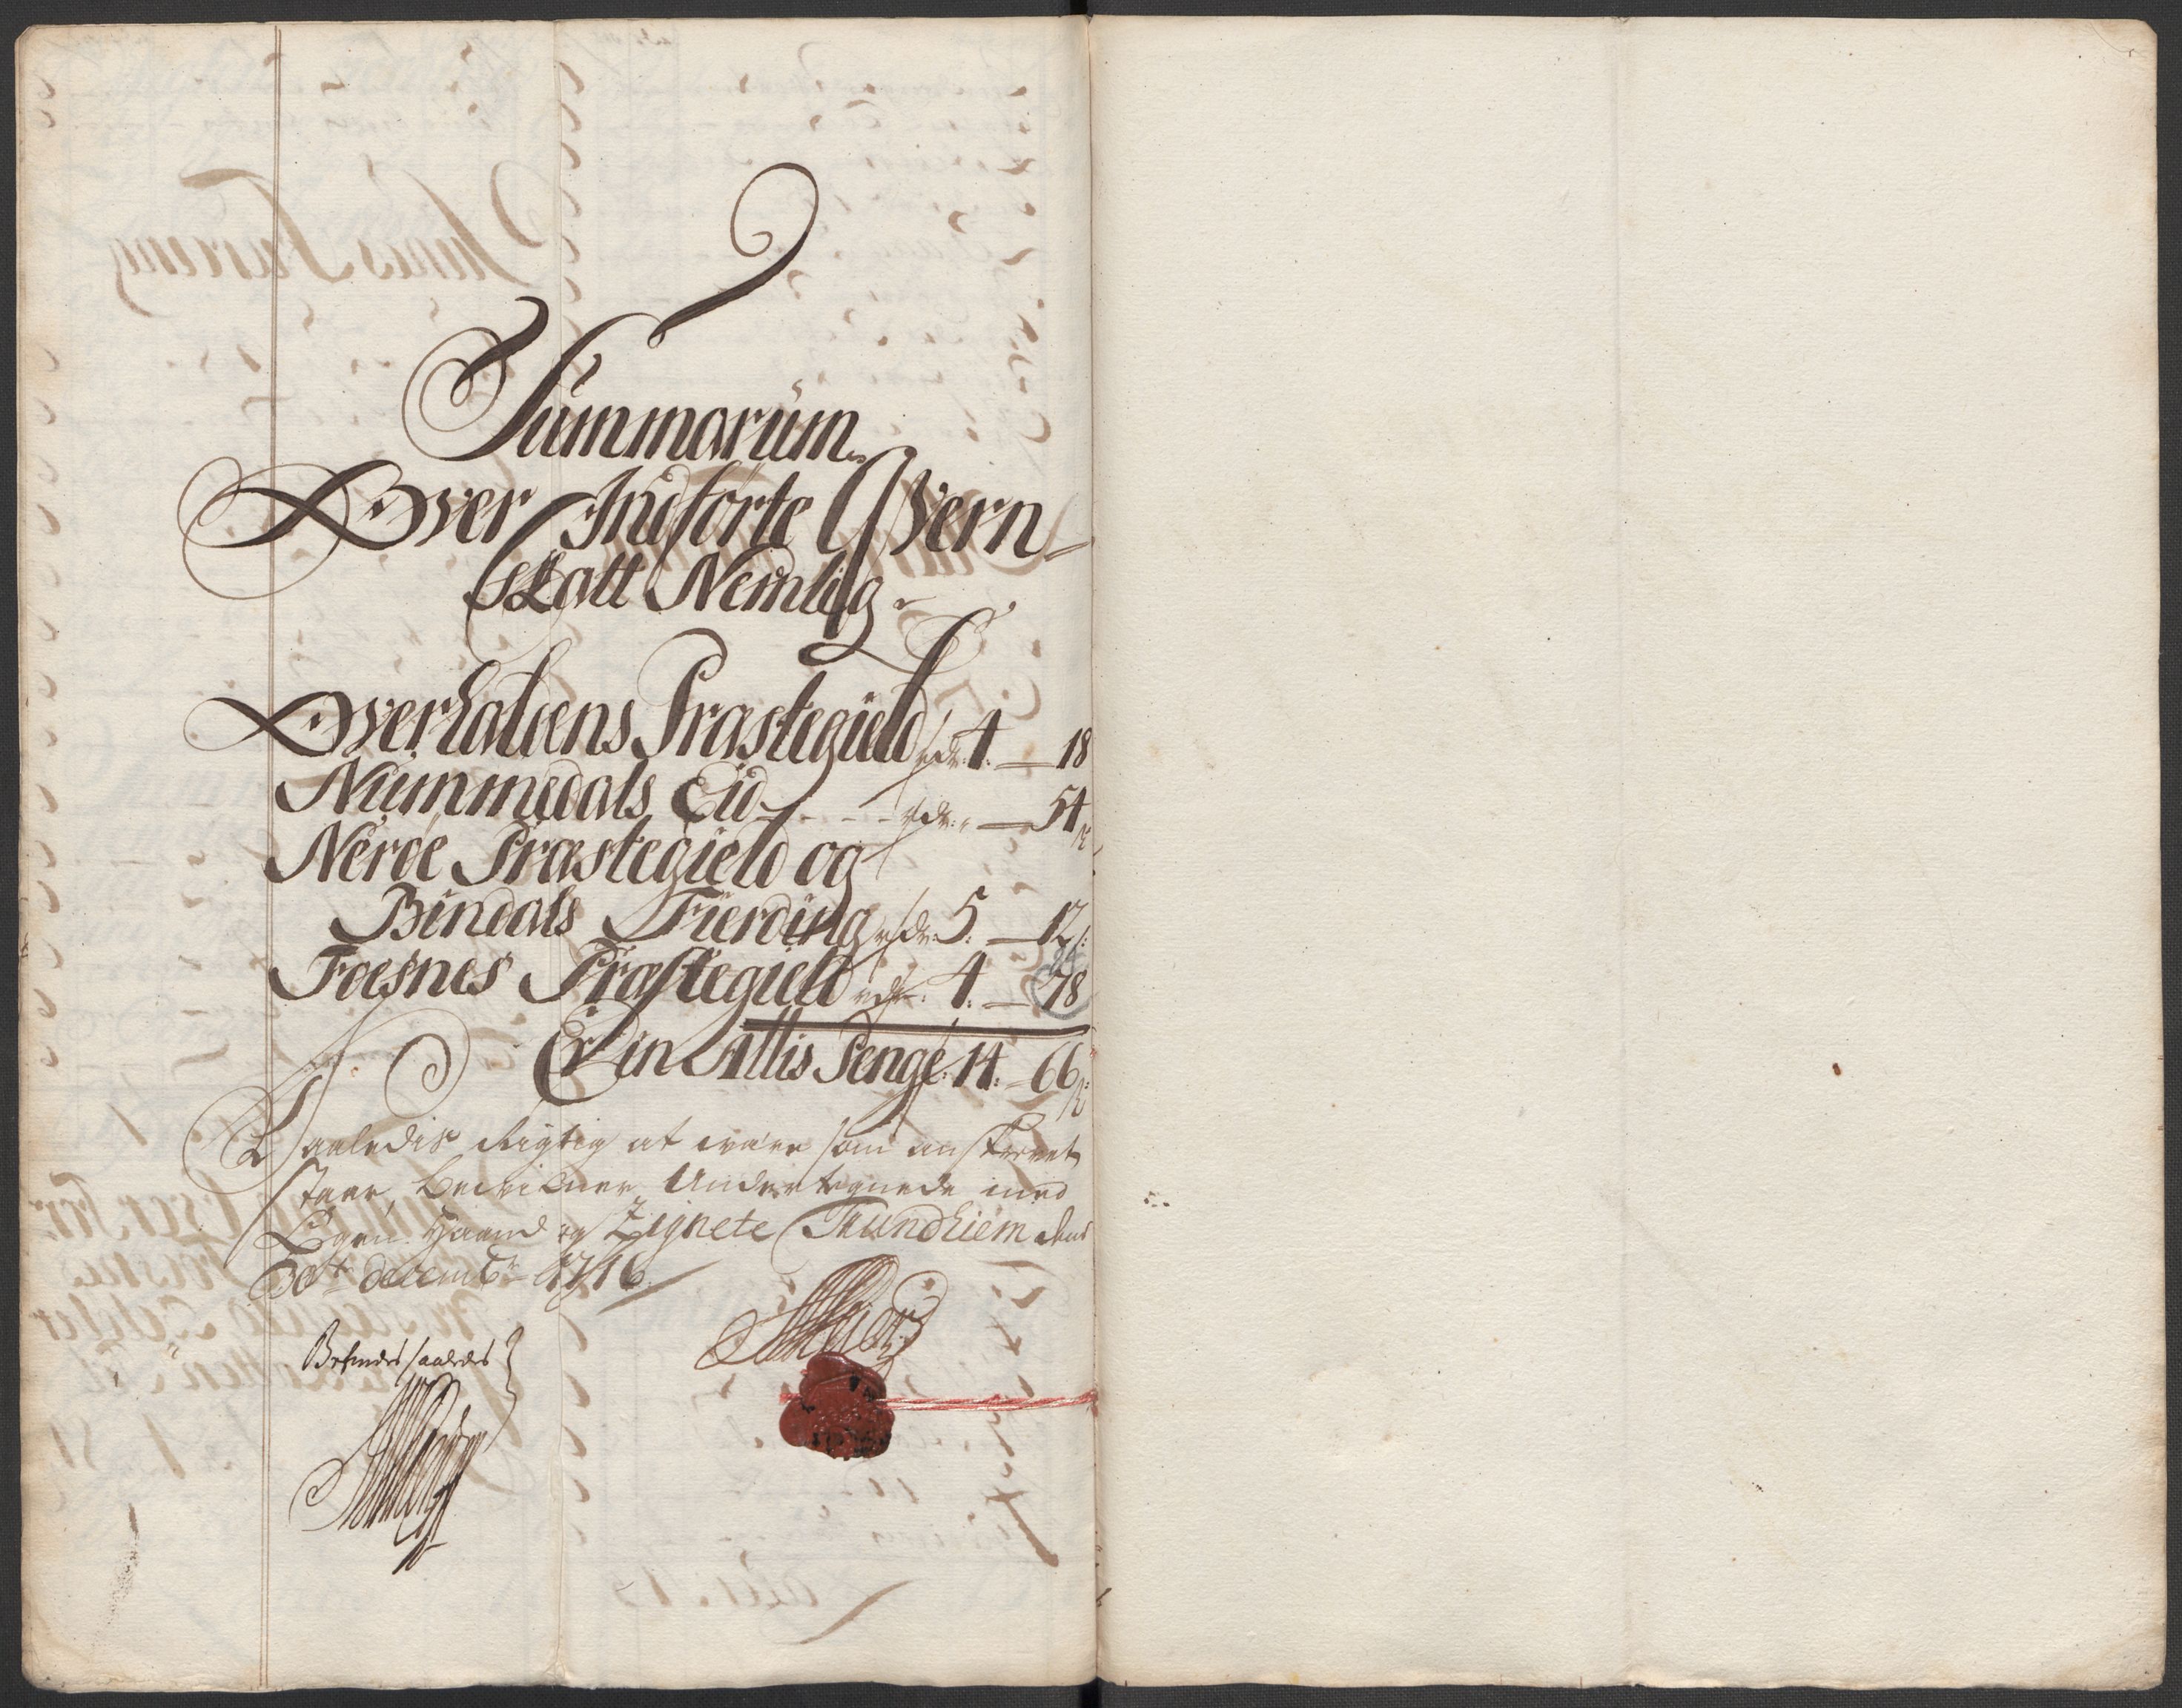 Summarum
Over Indførte Qvern-
skatt Nemlig
Overhalsens Præstegield rdr: 4. — 18
Nümmedals Eid - - - - rdr: „ — 54
Nerøe Præstegield og
Bindals Fierding rdr: 5. — 12
Foesnes Præstegield rdr: 4. — 78
Er in Allis Penge 14. - 66
Saaledis Rigtig at være som anskrevet
staar, Bevilner Undertegnede med
Egen Haand og Zignete Trundhiem den
30te decembr 1716
Befindes saaledes